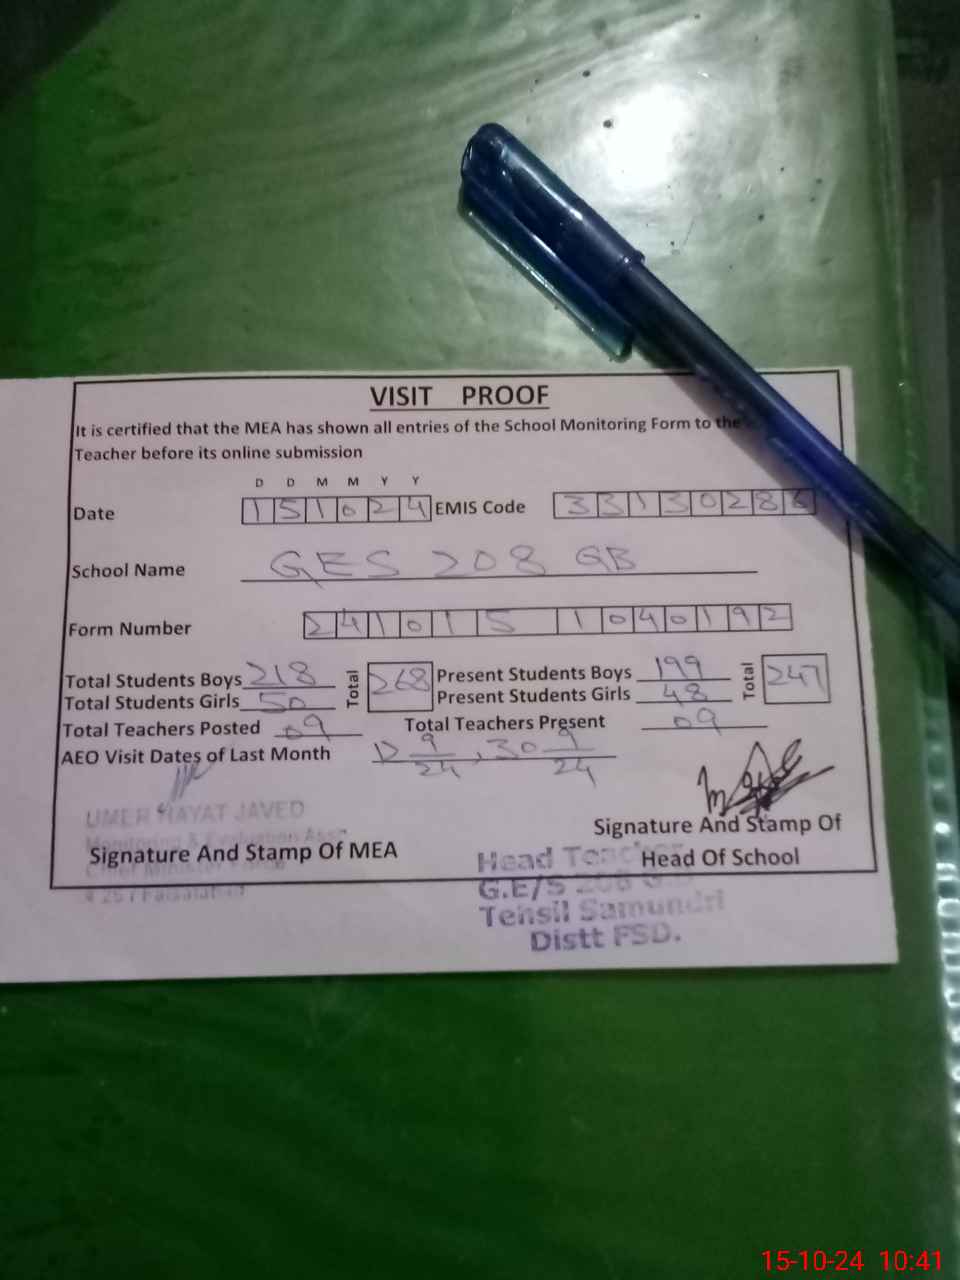 VISIT PROOF
It is certified that the MEA has shown all entries of the School Monitoring Form to the
Teacher before its online submission
D D M M Y Y
Date 151024 EMIS Code 33130286
School Name GES 208 GB
Form Number 2410151040192
Total Students Boys 218 Total 268 Present Students Boys 199 Total 247
Total Students Girls 50 Present Students Girls 48
Total Teachers Posted 09 Total Teachers Present 09
AEO Visit Dates of Last Month 12 9/24, 30 9/24
UMER HAYAT JAVED
Monitoring & Evaluation Asstt
Signature And Stamp Of MEA
Signature And Stamp Of
Head Of School
Head Teacher
G.E/S 208 G.B
Tehsil Samundri
Distt FSD.
15-10-24 10:41